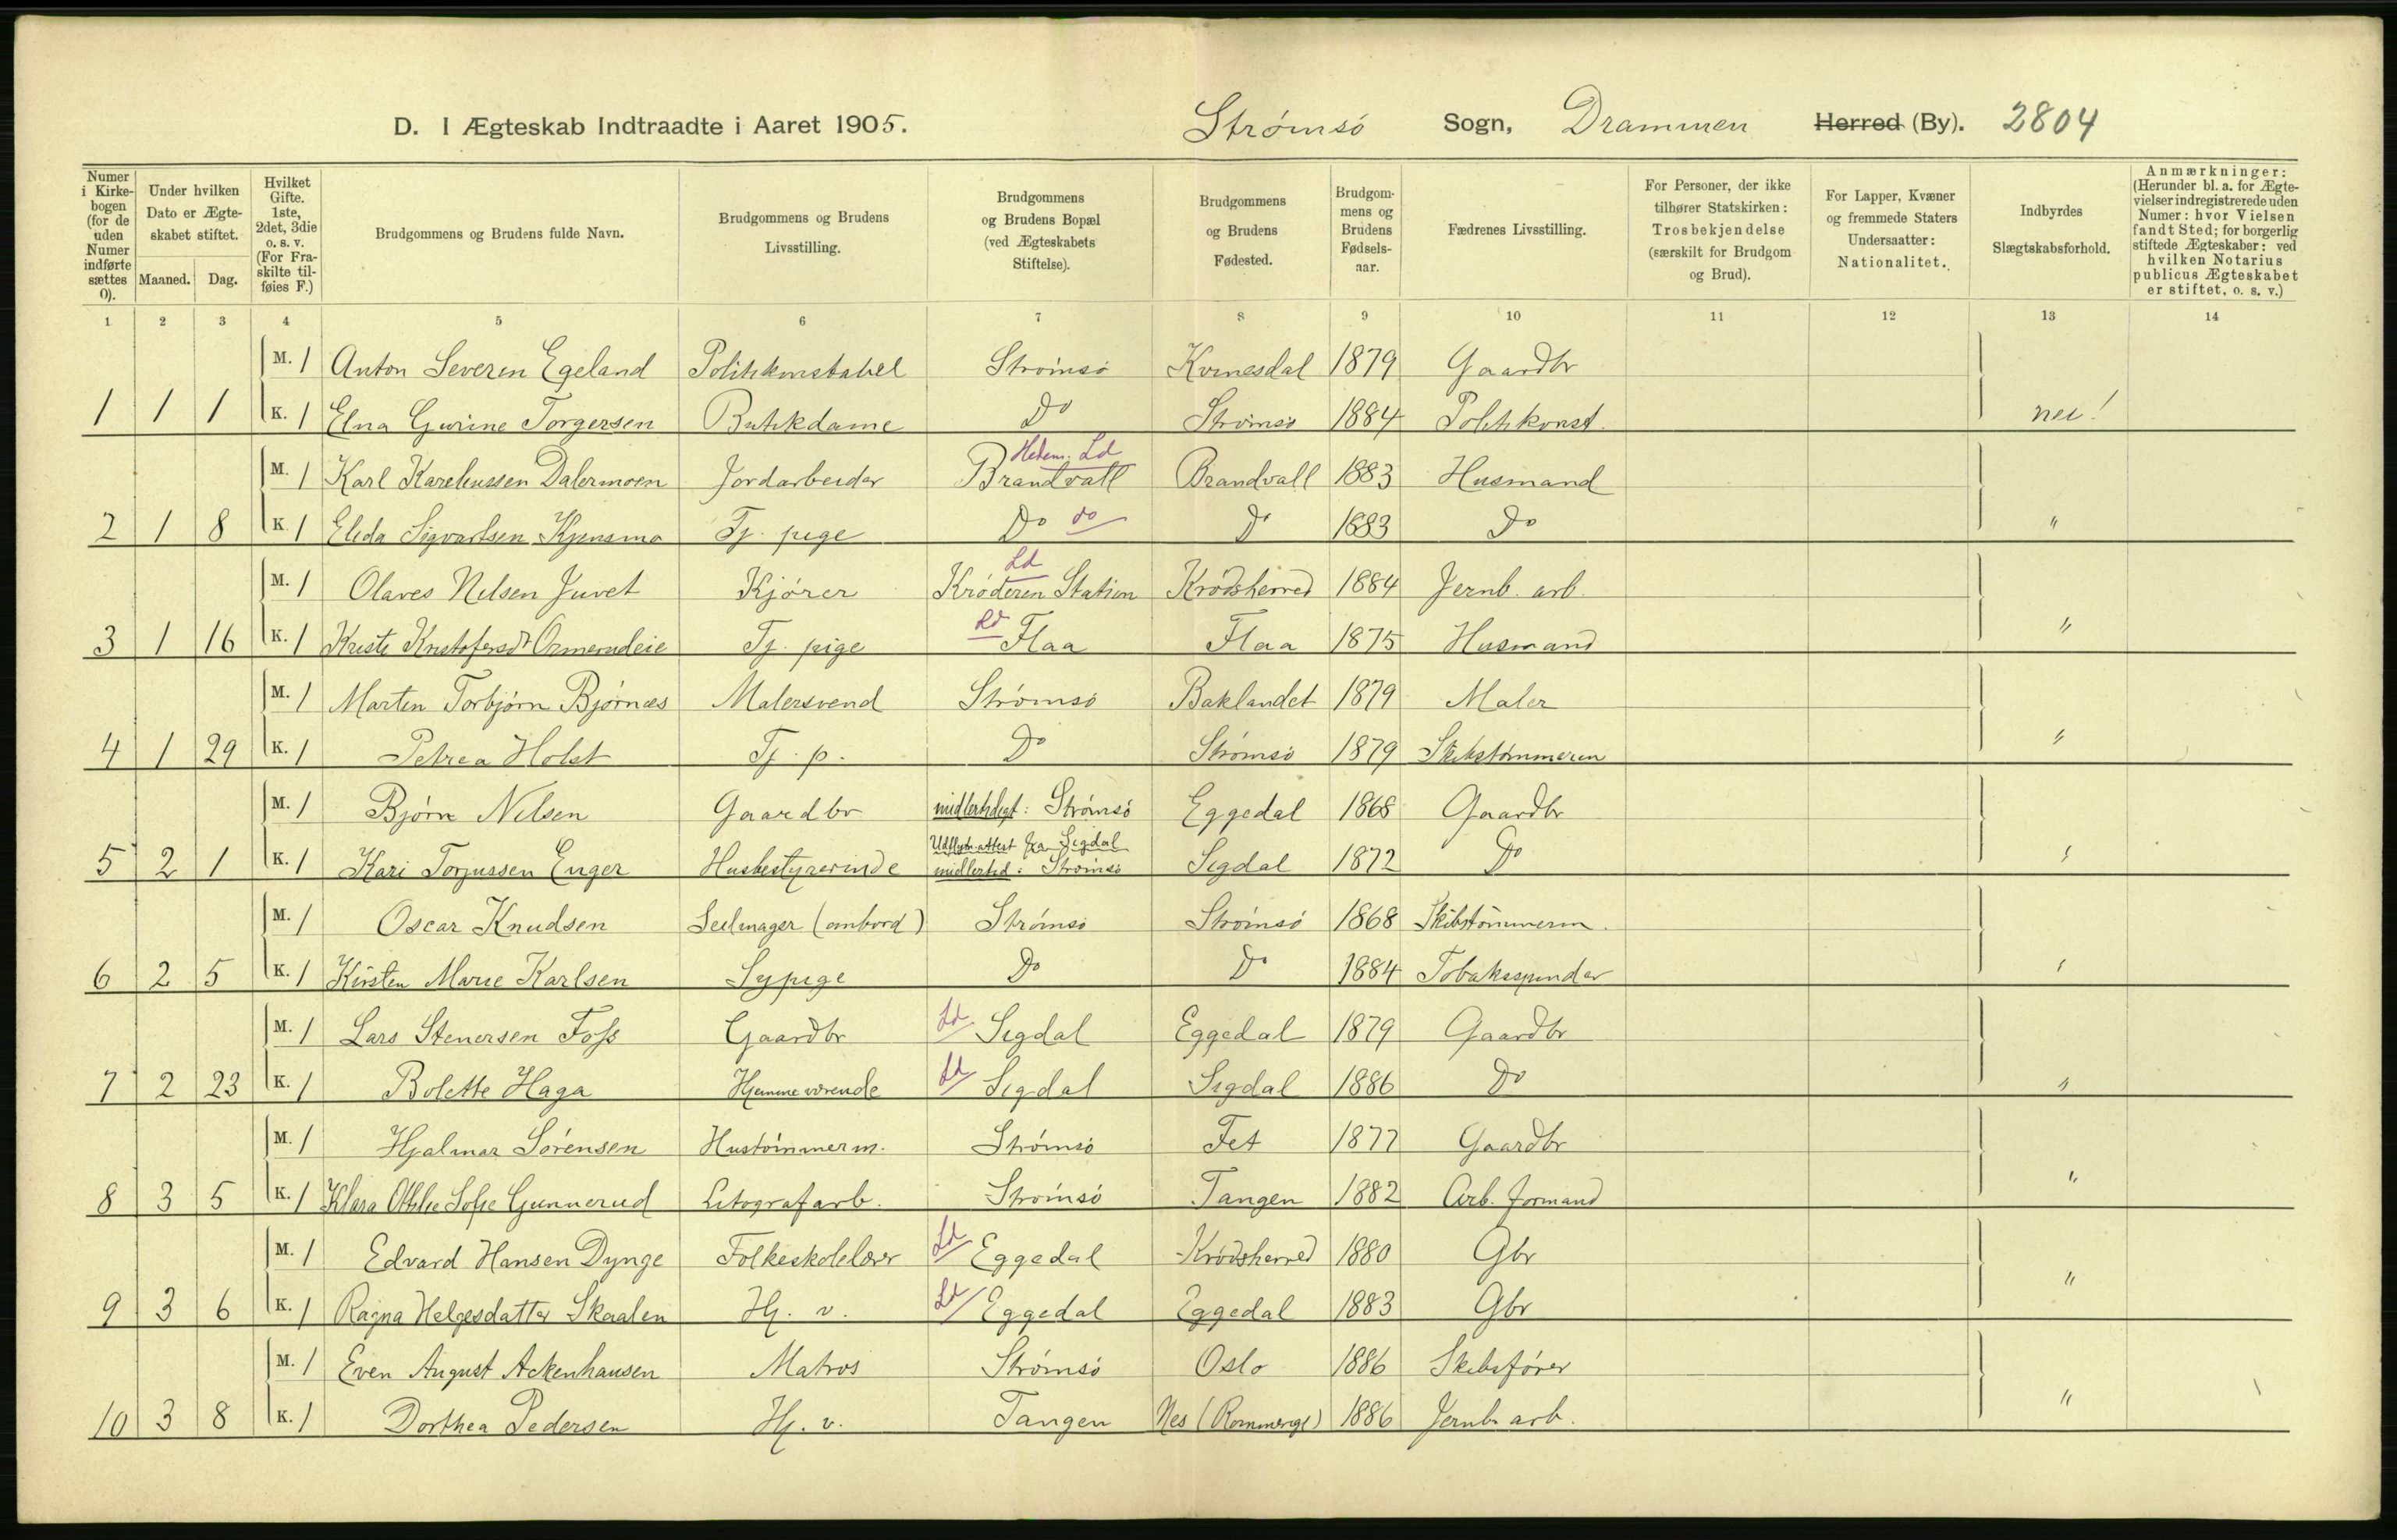 D. I Ægteskab Indtraadte i Aaret 1905. Strømsø Sogn, Drammen Herred (By). 2804
Numer i Kirkebogen (for de uden Numer indførte sættes 0). Under hvilken Dato er Ægteskabet stiftet. Maaned. Dag. Hvilket Gifte. 1ste, 2det, 3die o. s. v. (For Fraskilte tilføies F.) Brudgommens og Brudens fulde Navn. Brudgommens og Brudens Livsstilling. Brudgommens og Brudens Bopæl (ved Ægteskabets Stiftelse). Brudgommens og Brudens Fødested. Brudgommens og Brudens Fødselsaar. Fædrenes Livsstilling. For Personer, der ikke tilhører Statskirken: Trosbekjendelse (særskilt for Brudgom og Brud). For Lapper, Kvæner og fremmede Staters Undersaatter: Nationalitet. Indbyrdes Slægtskabsforhold. Anmærkninger: (Herunder bl. a. for Ægtevielser indregistrerede uden Numer: hvor Vielsen fandt Sted; for borgerlig stiftede Ægteskaber: ved hvilken Notarius publicus Ægteskabet er stiftet, o. s. v.)
1 2 3 4 5 6 7 8 9 10 11 12 13 14
M. 1 Anton Severin Egeland Politikonstabel Strømsö Kvinesdal 1879 Gaardbr
1 1 1 K. 1 Elna Gurine Torgersen Butikdame Do Strømsö 1884 Politikonst. nei!
Hedem. Ld
M. 1 Karl Dalermoen Jordarbeider Brandvall Brandvall 1883 Husmand
2 1 8 K. 1 Elida Sigvartsen Tj. pige Do do Do 1883 Do "
Ld
M. 1 Olaves Nilsen Juvet Kjører Krøderen Station Krødsherred 1884 Jernb. arb.
3 1 16 K. 1 Tj. pige Ld Flaa Flaa 1875 Husmand "
M. 1 Marten Torbjørn Bjørnæs Malersvend Strømsö Baklandet 1879 Maler
4 1 29 K. 1 Petrea Holst Tj. p. Do Strømsö 1879 "
M. 1 Bjørn Nilsen Gaardbr midlertidigt: Strømsö Eggedal 1868 Gaardbr
Udflytn.attest fra Sigdal
5 2 1 K. 1 Kari Torjussen Enger Husbestyrerinde midlertid: Strømsö Sigdal 1872 Do "
M. 1 Oscar Knudsen Seilmager (ombord) Strømsö Strømsö 1868 Skibstömmerm.
6 2 5 K. 1 Kirsten Marie Karlsen Sypige Do Do 1884 Tobakspinder "
M. 1 Lars Stenersen Foss Gaardbr Ld Sigdal Eggedal 1879 Gaardbr
7 2 23 K. 1 Bolette Haga Hjemmeværende Ld Sigdal Sigdal 1886 Do "
M. 1 Hjalmar Sörensen Hustömmerm. Strømsö Fet 1877 Gaardbr
8 3 5 K. 1 Klara Othilie Sofie Gunnerud Litografarb. Strømsö Tangen 1882 Arb. formand "
M. 1 Edvard Hansen Dynge Folkeskolelærer Ld Eggedal Krødsherred 1880 Gbr
9 3 6 K. 1 Ragna Helgesdatter Skaalen Hj. v. Ld Eggedal Eggedal 1883 Gbr "
M. 1 Even August Ackenhausen Matros Strømsö Oslo 1886 Skibsfører
10 3 8 K. 1 Dorthea Pedersen Hj. v. Tangen Nes (Romerige) 1886 Jernb. arb. "